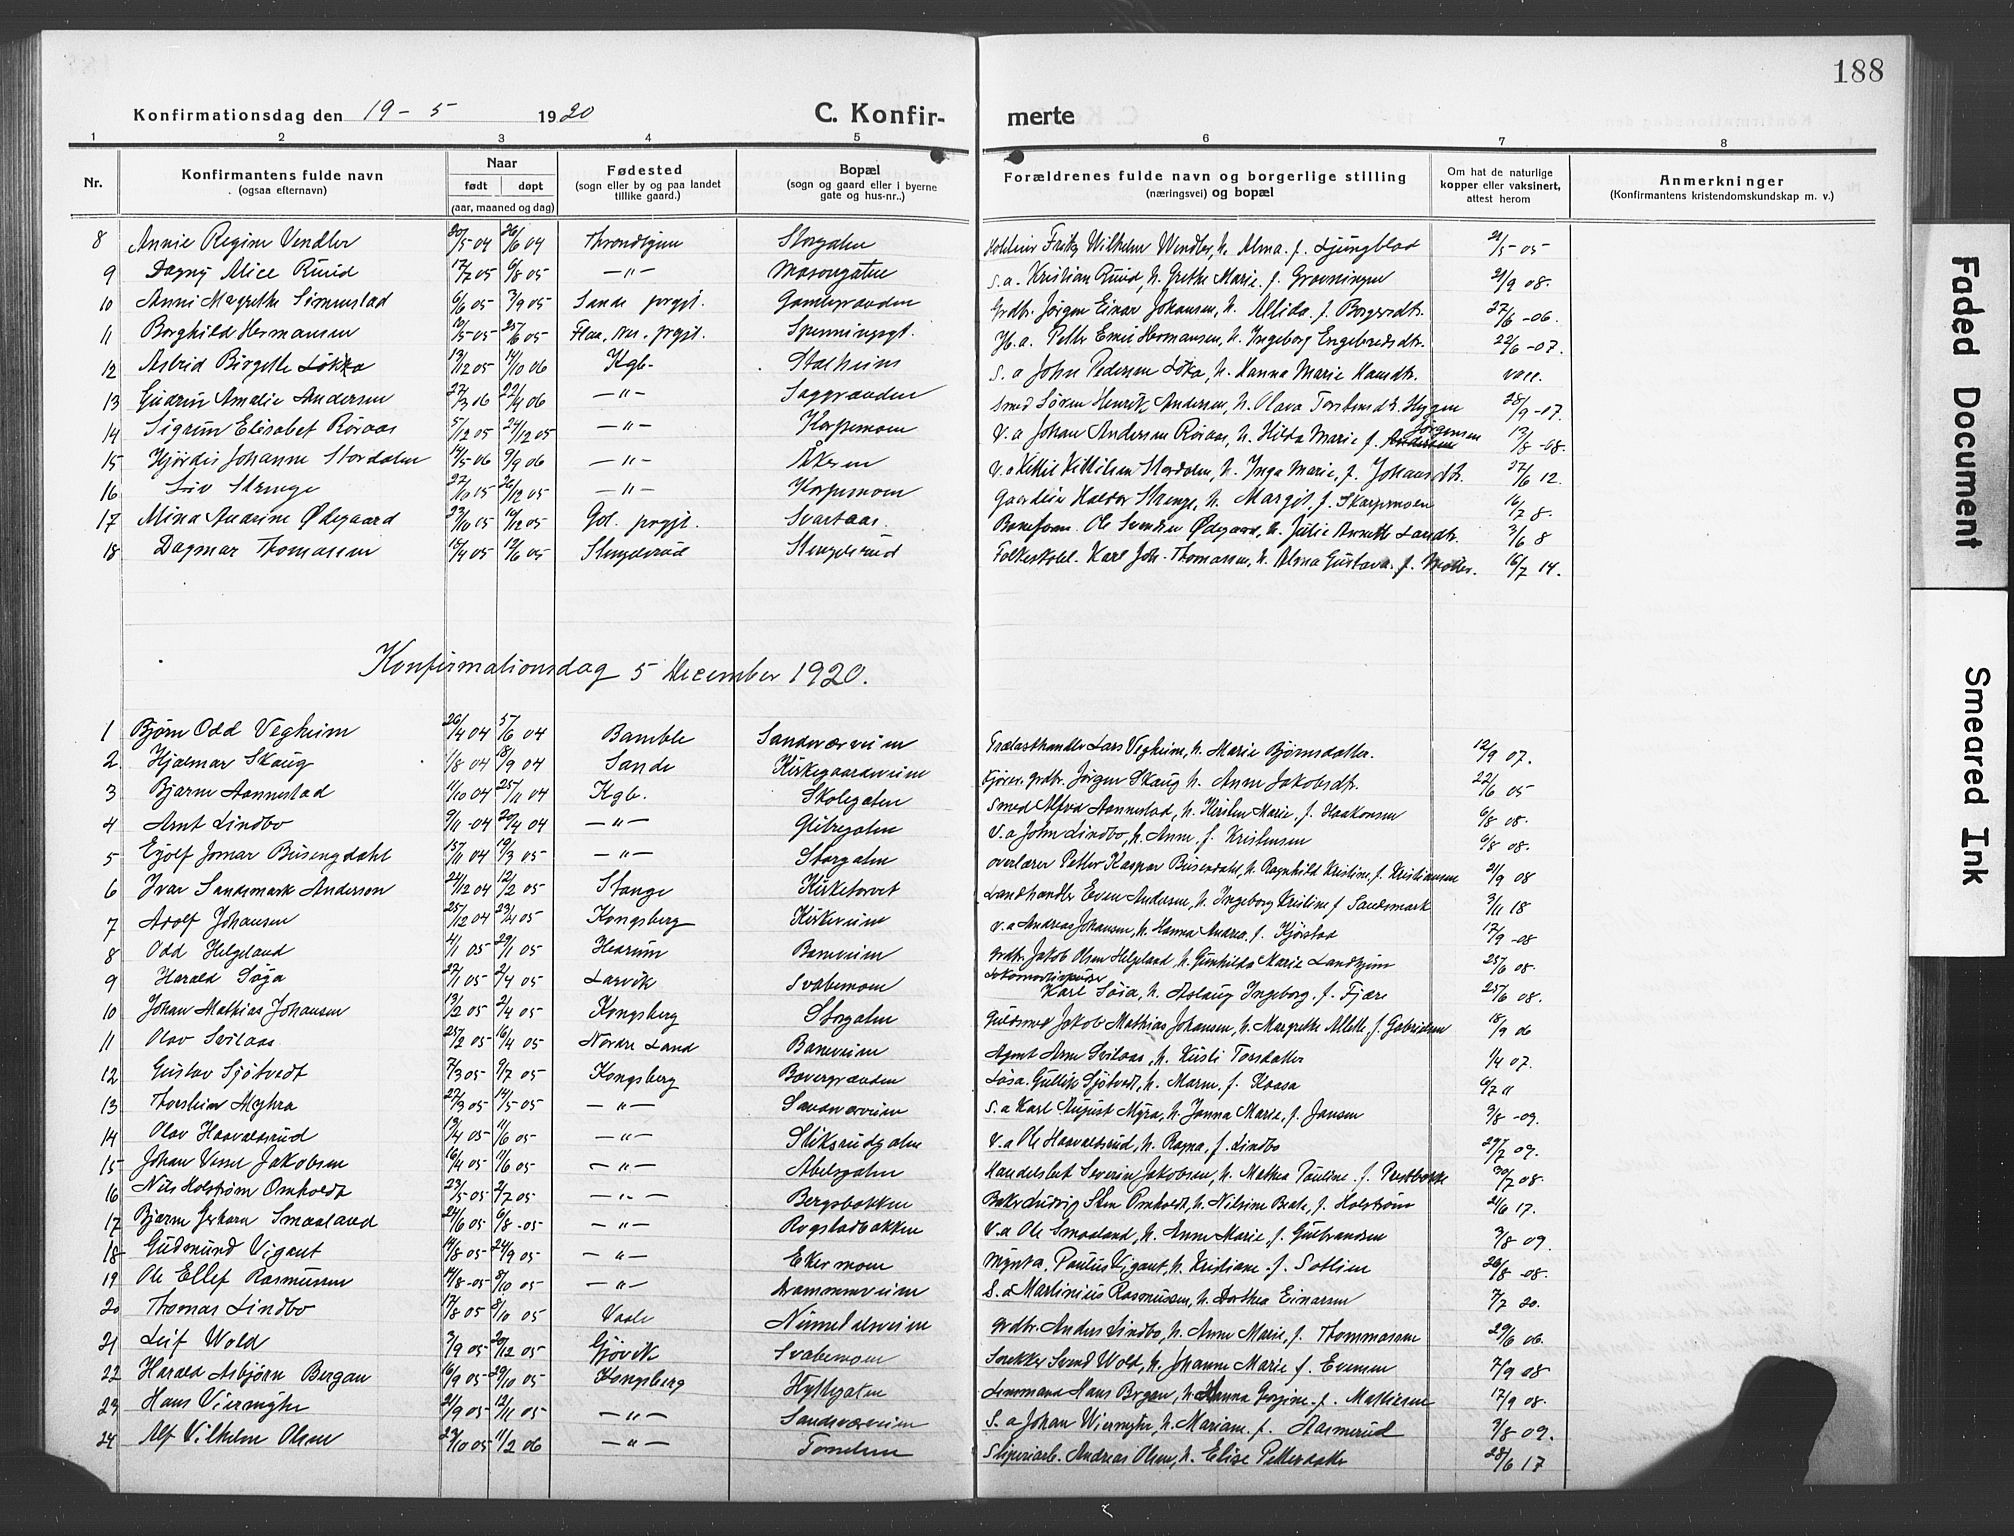 188
Konfirmationsdag den 19-5 1920 C. Konfir- merte
1 2 3 4 5 6 7 8
Nr. Konfirmantens fulde navn (ogsaa efternavn) Naar født døpt (aar, maaned og dag) Fødested (sogn eller by og paa landet tillike gaard.) Bopæl (sogn og gaard eller i byerne gate og hus-nr..) Forældrenes fulde navn og borgerlige stilling (næringsvei) og bopæl Om hat de naturlige kopper eller vaksinert, attest herom Anmerkninger (Konfirmantens kristendomskundskap m. v.)
8 Annie Regine Vendler 20/5 04 26/6 04 Throndhjem Storgaten Fritz Wilhelm Wendler, h. Alma f. Ljungblad 21/5 05
9 Dagny Alice Ruud 17/2 05 6/8 05 -"- Masovngaten S.a. Kristian Ruud, h. Grethe Marie f. Grønningen 21/9 08.
10 Anni Magrethe Simenstad 6/6 05 3/9 05 Sande prgjt. Gamlegrænden Grdbr. Jørgen Einar Johansen, h. Alfida f. 27/6 -06.
11 Borghild Hermansen 10/5 05 25/6 05 Flaa, Nes. prgjt. Spenningsgt. H.a. Petter Emil Hermansen, h. Ingeborg Engebredsdtr. 22/6 -07.
12 Astrid Birgitte Løkka 13/12 05 14/10 06 Kgb. Stalheim S.a John Pedersen Løka, h. Hanna Marie Hansdtr. vacc.
13 Gudrun Amalie Andersen 27/3 06 22/4 06 -"- Saggrænden Smed Søren Henrik Andersen, h. Olava Torstensd. Hygen 28/9 -07.
14 Sigrun Elisabet Røraas 5/12 05 24/12 05 -"- Korpemoen V.a Johan Andersen Røraas, h. Hilda Marie f. Jørgensen 13/8 -08.
15 Hjørdis Johanne Stordalen 14/5 06 9/9 06 -"- Åkeren V.a Kittil Kittilsen Stordalen, h. Inga Marie, f. Johansdtr. 27/6 12.
16 Liv Strenge 27/10 05 26/12 05 -"- Korpemoen Gaardeier Haldor Strenge, h. Margit f. Skarpmoen 16/7 8.
17 Mina Andrine Ødegaard 23/10 05 10/12 05 Gol. prgjt. Svartaas. Banefvm. Ole Svendsen Ødegaard, h. Julie Annette Larsdtr. 3/6 8
18 Dagmar Thomassen 15/4 05 12/6 05 Stengelsrud Stengelsrud Folkeskolel. Karl Joh. Thomassen, h. Alma Gustava f. Møller. 16/7 14.
Konfirmationsdag 5 December 1920.
1 Bjørn Odd Vegheim 26/4 04 5/6 04 Bamble Sandsværveien Trælasthandler Lars Vegheim, h. Marie Bjørnsdatter. 12/9 07.
2 Hjalmar Skaug 1/8 04 18/9 04 Sande Kirkegaardsveien Kjører. grdbr. Jørgen Skaug h. Anna Jakobsdtr. 22/6 05
3 Bjarne Aannestad 11/10 04 25/11 04 Kgb. Skolegaten Smed Alfred Aannestad, h. Kirsten Marie f. Haakonsen 6/8 08.
4 Arnt Lindbo 9/11 -04 20/4 04 -"- Glitregaten V.a John Lindbo, h. Anne f. Kristensen 6/8 08.
5 Ejolf Jomar Busengdahl 15/11 04 19/3 05 -"- Storgaten Overlærer Petter Kaspar Busendahl, h. Ragnhild Kristine, f. Kristiansen 21/9 08
6 Ivar Sandsmark Anderson 24/12 04 12/2 05 Stange Kirketorvet Landhandler Even Andersen, h. Ingeborg Kristine f Sandsmark 3/11 18
7 Adolf Johansen 25/12 04 23/4 05 Kongsberg Kirkeveien V.a Andreas Johansen, h. Hanna Andrea f. Kjørstad 17/9 -08
8 Odd Helgeland 4/1 05 29/1 05 Hedrum Baneveien Grdbr. Jakob Olsen Helgeland, h. Gunhilda Marie Landheim 25/6 08.
9 Harald Søya 27/1 05 2/4 05 Larvik Svabemoen Lokomotivpudser Karl Søia, h. Aslaug Ingeborg f. Fjære 25/6 08.
10 Johan Mathias Johansen 13/2 05 2/4 05 Kongsberg Storgaten Guldsmed Jakob Mathias Johansen, h. Margrethe Allette, f. Gabrielsen 18/9 06
11 Olav Svilaas 25/2 05 16/4 05 Nordre Land Baneveien Agent Arne Svilaas, h. Kirsti Torsdatter 1/4 07.
12 Gustav Sjøtvedt 7/3 05 9/7 05 Kongsberg Bævergrænden Løsa. Gullik Sjøtvedt, h. Maren, f. Kaasa 6/7 11
13 Thorstein Myhra 27/3 05 14/5 05 -"- Sandsværveien S.a Karl August Myra, h. Janna Marie, f. Jansen 3/8 -09.
14 Olav Haavaldsrud 19/4 05 11/6 05 -"- Stiksrudgaten V.a Ole Haavaldsrud, h. Ragna, f. Lindbo 29/7 09.
15 Johan Vessel Jakobsen 16/4 05 11/6 05 -"- Abelsgaten Handelsbet Severin Jakobsen, h. Mathea Pauline f. Prestbakke 30/7 08.
16 Nils Holstrøm Omholdt 23/5 05 2/7 05 -"- Bergsbakken Baker Ludvig Sten Omholdt, h. Nilsine Beate, f. Holstrøm 2/6 17.
17 Bjarne Gerhard Smaaland 24/6 05 6/8 -05 -"- Rogstadbakken V.a Ole Smaaland, h. Anne Marie f. Gulbrandsen 3/8 09.
18 Gudmund Vigant 14/8 05 24/9 05 -"- Ekermoen Mynta. Paulus Vigant, h. Kristiane f. Sollien 26/8 -08.
19 Ole Ellef Rasmussen 14/8 -05 8/10 05 -"- Drammensveien S.a Martinius Rasmussen, h. Dorthea Einarsen 7/7 20.
20 Thomas Lindbo 17/8 05 8/10 05 Vaale Numedalsveien Grdbr. Anders Lindbo, h. Anne Marie, f. Thommassen 29/6 06.
21 Leif Wold 3/9 05 20/12 05 Gjøvik Svabemoen Snekker Svend Wold, h. Johanne Marie f. Evensen 7/9 08
22 Harald Asbjørn Bergan 16/9 05 29/10 05 Kongsberg Hyttegaten Lensmand Hans Bergan, h. Hanna Gorgine f. Mathisen 17/9 08.
23 Hans Viermyhr 21/9 05 12/11 05 -"- Sandsværveien S.a Johan Wiermyhr, h. Mariane f. Aasmerud 3/8 09.
24 Alf Vilhelm Olsen 23/10 05 11/2 06 -"- Tømten Sliperiarb. Andreas Olsen, h. Elise Pettersdatter 28/6 17
Faded Document
Smeared Ink